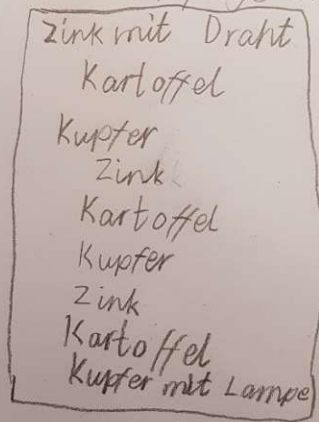 Zink mit Draht
Kartoffel
Kupfer
Zink
Kartoffel
Kupfer
Zink
Kartoffel
Kupfer mit Lampe